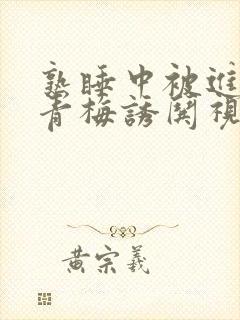 熟睡中被進
青梅誘関視
黄宗羲